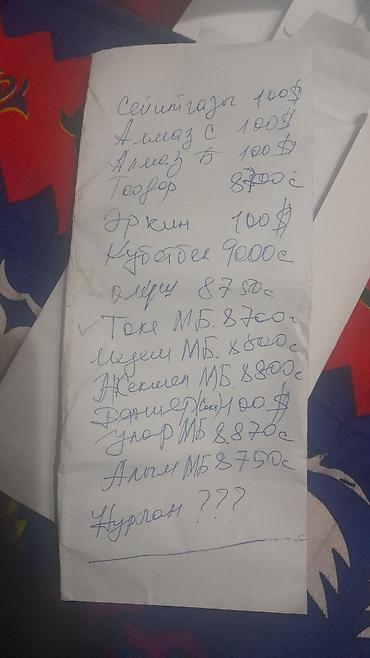 Сейитгазы 100$
Алмаз С 100$
Алмаз Б 100$
8700с
Эркин 100$
Кубатбек 9000с
8750с
Таке МБ. 8700с
МБ. 8800с
Жекшен МБ. 8800с
Данияр (Саке) 100$
Улар МБ 8870с
Алым МБ 8750с
Нурлан ???